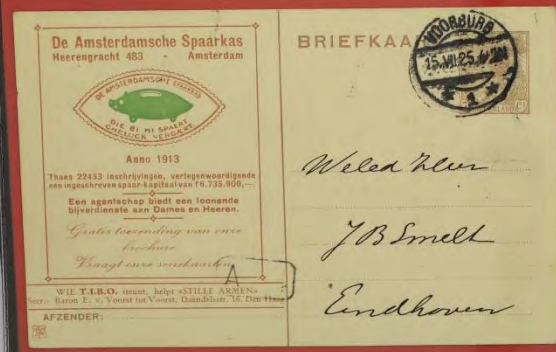 De Amsterdamsche Spaarkas
Heerengracht 483 - Amsterdam
DE AMSTERDAMSCHE SPAARKAS
DIE BI MI SPAERT
GHELUCK VERGAERT
Anno 1913
Thans 22453 inschrijvingen, vertegenwoordigende
een ingeschreven spaar-kapitaal van f 6.735.900,—.
Een agentschap biedt een loonende
bijverdienste aan Dames en Heeren.
Gratis toezending van onze
brochure
Vraagt onze
A
WIE T.I.B.O. steunt, helpt «STILLE ARMEN»
Secr.: Baron E. v. Voorst tot Voorst, Daendelsstr. 16, Den Haag
AFZENDER:
BRIEFKAA
VOORBURG
15.VII.25.
1
Weled Heer
J B Smelt
Eindhoven